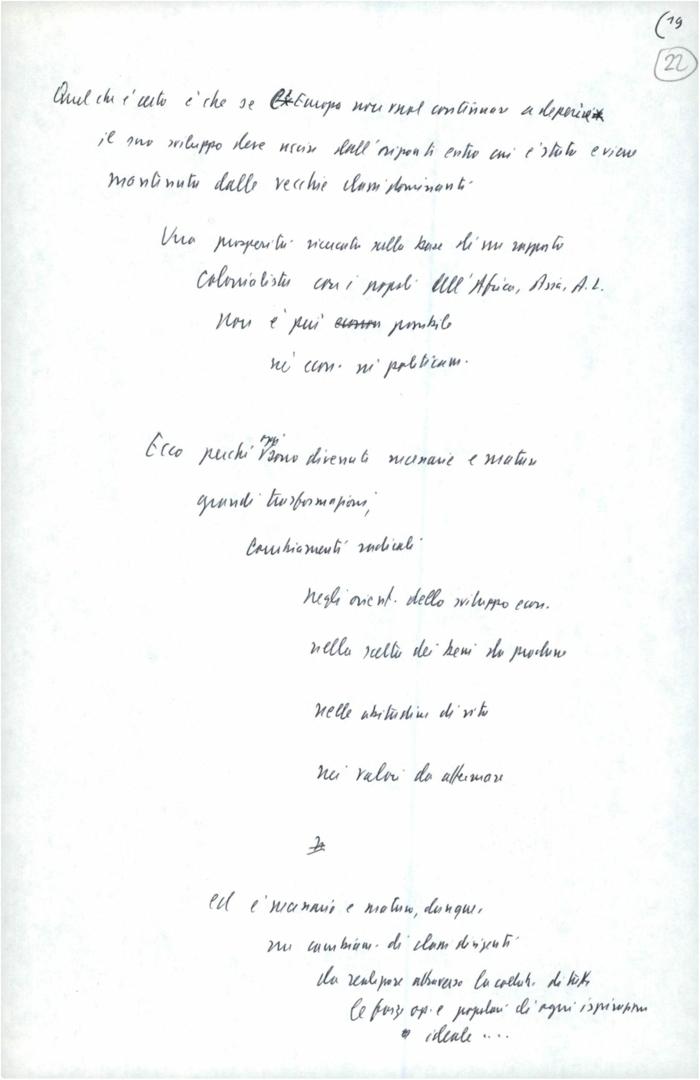 (19
22
Quel che è certo è che se l'Europa non vuol continuare a deperire
il suo sviluppo deve uscire dall' entro cui è stato e viene
mantenuto dalle vecchie classi dominanti.
Una prosperità ricercata sulla base di un rapporto
colonialista con i popoli dell'Africa, Asia, A.L.
non è più possibile
né econ. né politicam.
Ecco perché oggi sono divenute necessarie e mature
grandi trasformazioni,
Cambiamenti radicali
negli orient. dello sviluppo econ.
nella scelta dei beni da produrre
nelle abitudini di vita
nei valori da affermare
ed è necessario e maturo, dunque,
un cambiam. di classi dirigenti
da realizzare attraverso la di tutte
le forze op. e popolari di ogni ispirazione
ideale ....